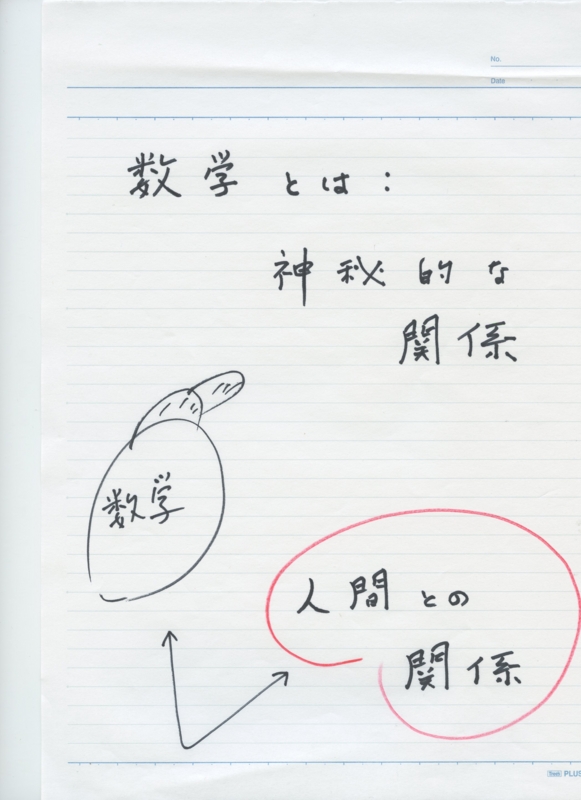 No.
Date
数学とは:
神秘的な
関係
数学
人間との
関係
PLUS